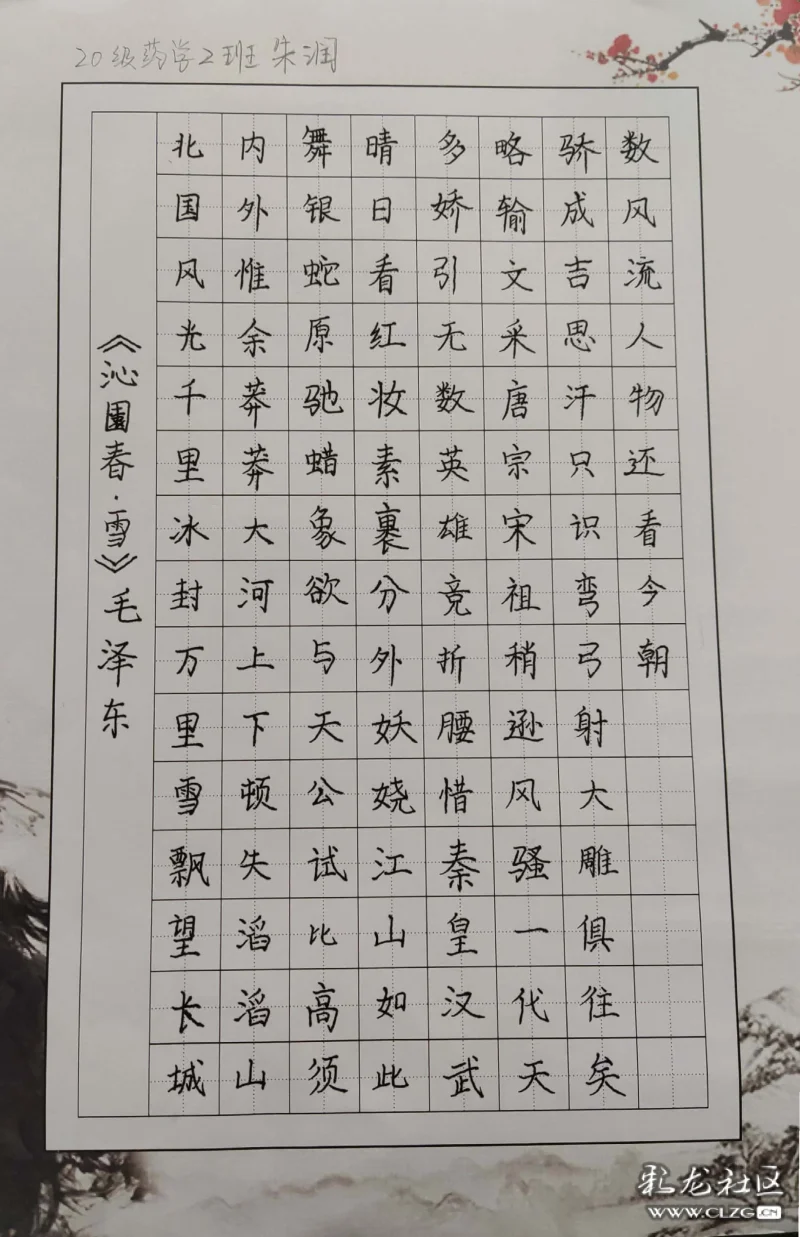 20级药学2班 朱润
《沁園春·雪》毛泽东
北国风光千里冰封万里雪飘望长城
内外惟余莽莽大河上下顿失滔滔山
舞银蛇原驰蜡象欲与天公试比高须
晴日看红妆素裹分外妖娆江山如此
多娇引无数英雄竞折腰惜秦皇汉武
略输文采唐宗宋祖稍逊风骚一代天
骄成吉思汗只识弯弓射大雕俱往矣
数风流人物还看今朝
彩龙社区
WWW.CLZG.CN